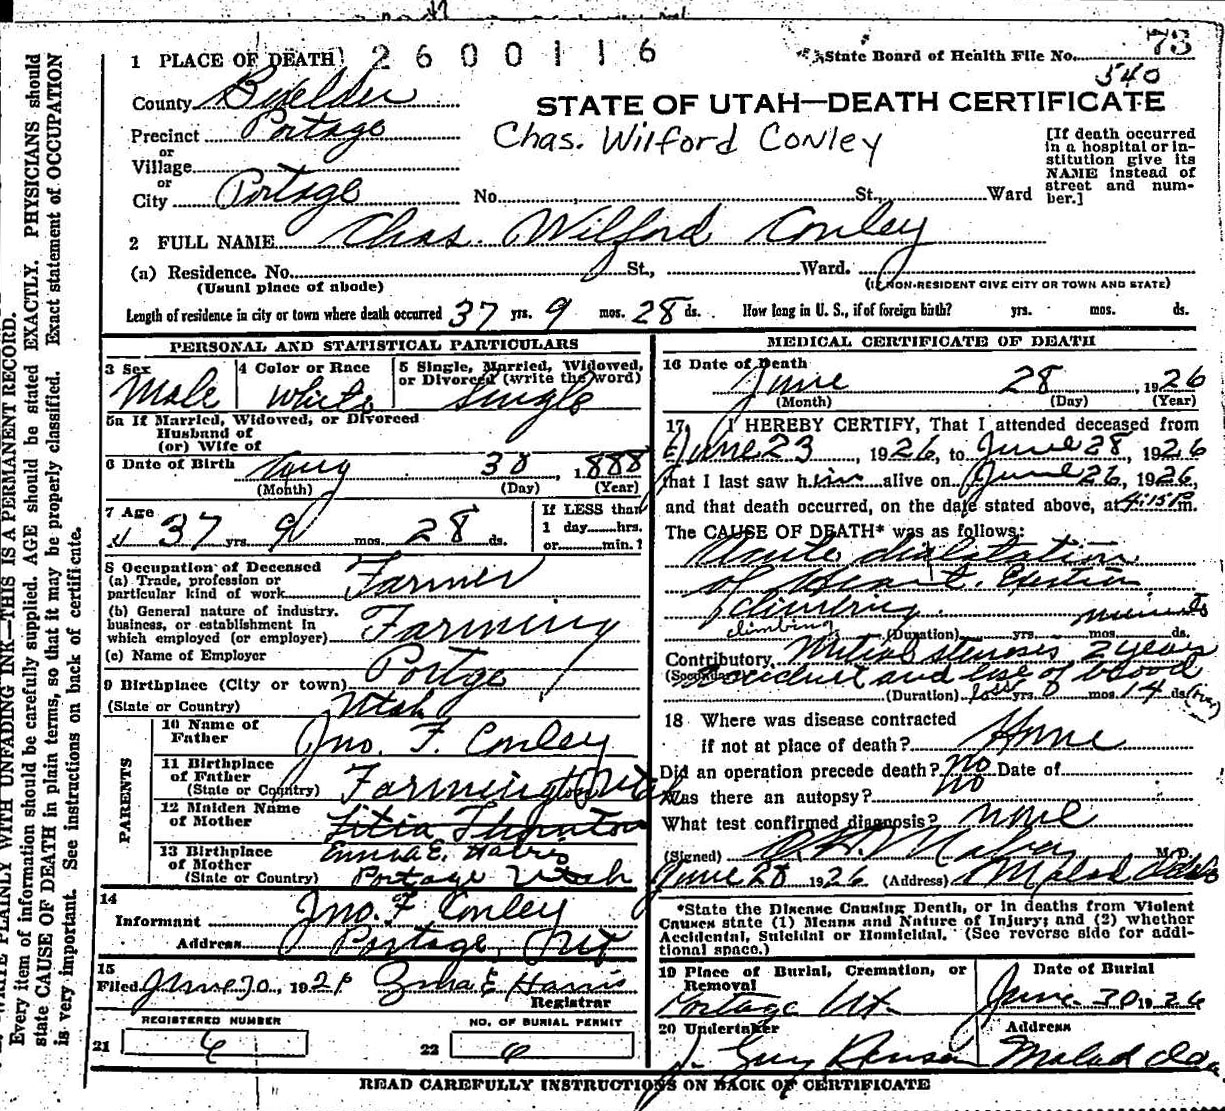 1 PLACE OF DEATH 2600116
State Board of Health File No. 73
540
County Boxelder
STATE OF UTAH—DEATH CERTIFICATE
Precinct Portage
Chas. Wilford Conley
or
Village
or
City Portage
No. St., Ward
[If death occurred
in a hospital or in-
stitution give its
NAME instead of
street and num-
ber.]
2 FULL NAME Chas. Wilford Conley
(a) Residence. No. St., Ward.
(Usual place of abode)
(If NON-RESIDENT GIVE CITY OR TOWN AND STATE)
Length of residence in city or town where death occurred 37 yrs. 9 mos. 28 ds. How long in U. S., if of foreign birth? yrs. mos. ds.
PERSONAL AND STATISTICAL PARTICULARS
3 Sex
Male
4 Color or Race
White
5 Single, Married, Widowed,
or Divorced (write the word)
Single
5a If Married, Widowed, or Divorced
Husband of
(or) Wife of
6 Date of Birth Aug 30 1888
(Month) (Day) (Year)
7 Age
37 yrs. 9 mos. 28 ds.
If LESS than
1 day hrs.
or min.
8 Occupation of Deceased
(a) Trade, profession or
particular kind of work Farmer
(b) General nature of industry.
business, or establishment in
which employed (or employer) Farming
(c) Name of Employer
9 Birthplace (City or town) Portge
(State or Country) Utah
PARENTS
10 Name of
Father Jno. F. Conley
11 Birthplace
of Father
(State or Country) Farmington Utah
12 Maiden Name
of Mother Litia Thornton
Emma E. Harris
13 Birthplace
of Mother
(State or Country) Portage Utah
14
Informant Jno. F Conley
Address Portage, Ut
15
Filed June 30, 192 E Harris
Registrar
REGISTERED NUMBER
21 6
NO. OF BURIAL PERMIT
22 6
MEDICAL CERTIFICATE OF DEATH
16 Date of Death
June 28 1926
(Month) (Day) (Year)
17 I HEREBY CERTIFY, That I attended deceased from
June 23, 1926, to June 28, 1926
that I last saw him alive on June 26, 1926,
and that death occurred, on the date stated above, at 4:15 P.m.
The CAUSE OF DEATH* was as follows:
Acute dialatation
of Heart. Exertion
climbing. minuets
climbing
(Duration) yrs. mos. ds.
Contributory Mitral stenosis 2 years
(Secondary) accident and lose of blood
(Duration) loss yrs. mos. 14 ds
18 Where was disease contracted
if not at place of death? Home
Did an operation precede death? no Date of
Was there an autopsy? no
What test confirmed diagnosis? none
(Signed) Mabey M. D.
June 28 1926 (Address) Malad Idaho
*State the Disease Causing Death, or in deaths from Violent
Causes state (1) Means and Nature of Injury; and (2) whether
Accidental, Suicidal or Homicidal. (See reverse side for addi-
tional space.)
19 Place of Burial, Cremation, or
Removal
Portage Ut.
Date of Burial
June 30 1926
20 Undertaker
J. Guy Benson
Address
Malad Ida
READ CAREFULLY INSTRUCTIONS ON BACK OF CERTIFICATE
WRITE PLAINLY WITH UNFADING INK—THIS IS A PERMANENT RECORD.
Every item of information should be carefully supplied. AGE should be stated EXACTLY. PHYSICIANS should
state CAUSE OF DEATH in plain terms, so that it may be properly classified. Exact statement of OCCUPATION
is very important. See instructions on back of certificate.